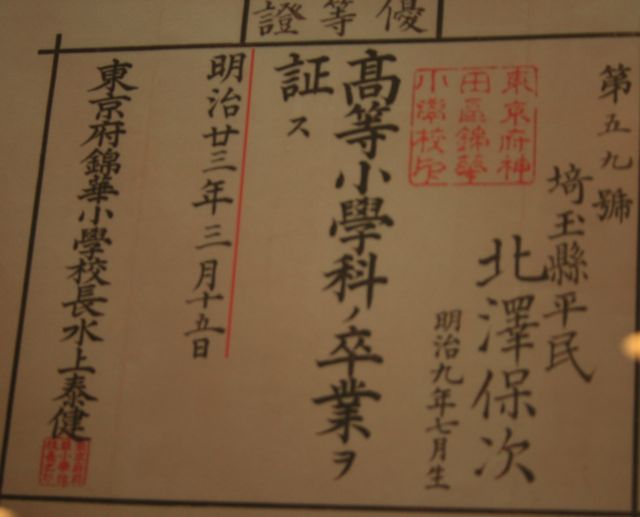 優等證
第五九號
埼玉縣平民
北澤保次
明治九年七月生
東京府神
田區錦華
小學校印
高等小學科ノ卒業ヲ
証ス
明治廿三年三月十五日
東京府錦華小學校長水上泰健